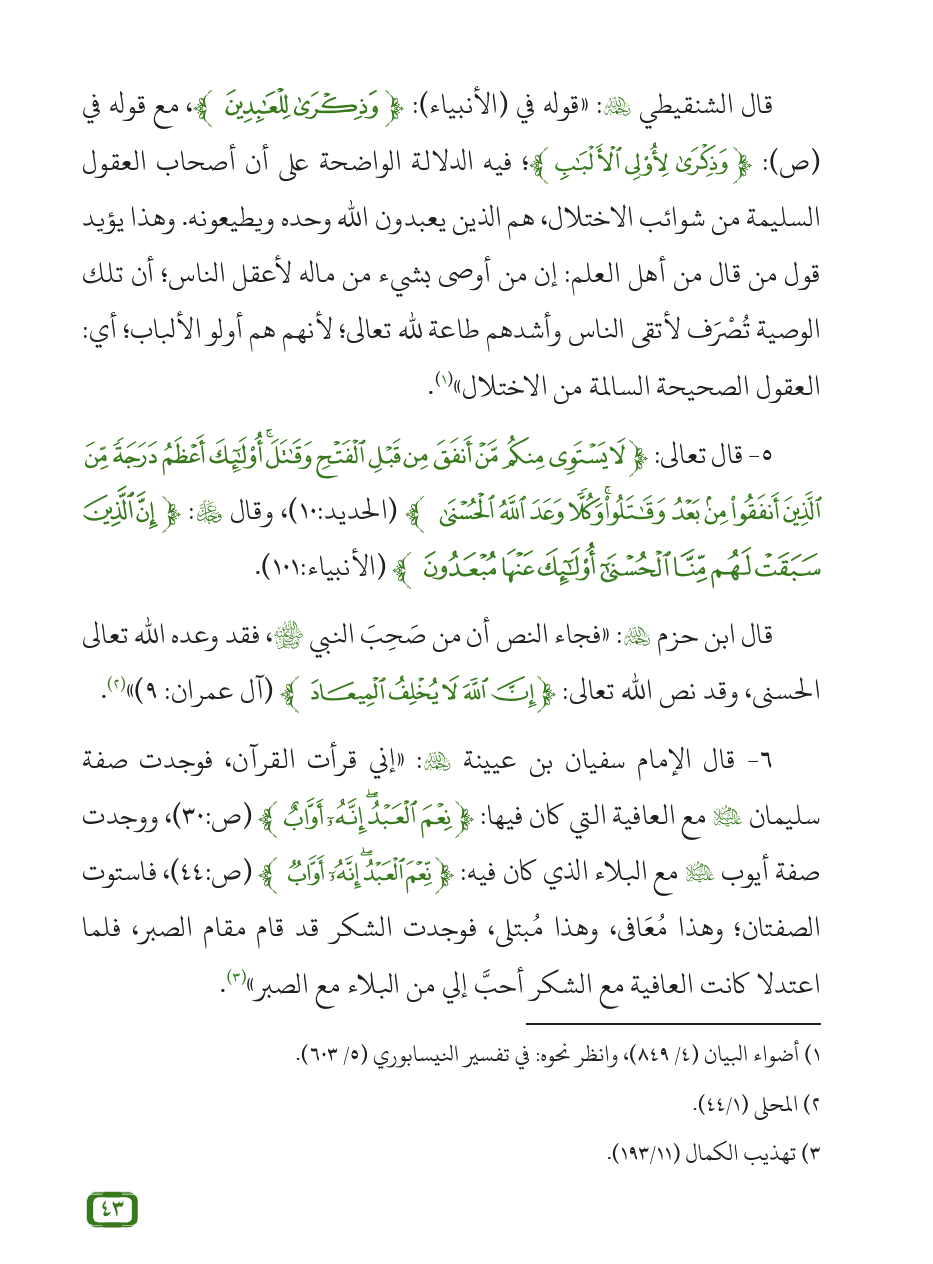 قال الشنقيطي ﵀: «قوله في (الأنبياء): ﴿وَذِكْرَىٰ لِلْعَٰبِدِينَ﴾، مع قوله في
(ص): ﴿وَذِكْرَىٰ لِأُو۟لِى ٱلْأَلْبَٰبِ﴾؛ فيه الدلالة الواضحة على أن أصحاب العقول
السليمة من شوائب الاختلال، هم الذين يعبدون الله وحده ويطيعونه. وهذا يؤيد
قول من قال من أهل العلم: إن من أوصى بشيء من ماله لأعقل الناس؛ أن تلك
الوصية تُصْرَف لأتقى الناس وأشدهم طاعة لله تعالى؛ لأنهم هم أولو الألباب؛ أي:
العقول الصحيحة السالمة من الاختلال»(١).
٥- قال تعالى: ﴿لَا يَسْتَوِى مِنكُم مَّنْ أَنفَقَ مِن قَبْلِ ٱلْفَتْحِ وَقَٰتَلَ ۚ أُو۟لَٰٓئِكَ أَعْظَمُ دَرَجَةً مِّنَ
ٱلَّذِينَ أَنفَقُوا۟ مِنۢ بَعْدُ وَقَٰتَلُوا۟ ۚ وَكُلًّا وَعَدَ ٱللَّهُ ٱلْحُسْنَىٰ﴾ (الحديد:١٠)، وقال ﷻ: ﴿إِنَّ ٱلَّذِينَ
سَبَقَتْ لَهُم مِّنَّا ٱلْحُسْنَىٰٓ أُو۟لَٰٓئِكَ عَنْهَا مُبْعَدُونَ﴾ (الأنبياء:١٠١).
قال ابن حزم ﵀: «فجاء النص أن من صَحِبَ النبي ﷺ، فقد وعده الله تعالى
الحسنى، وقد نص الله تعالى: ﴿إِنَّ ٱللَّهَ لَا يُخْلِفُ ٱلْمِيعَادَ﴾ (آل عمران: ٩)»(٢).
٦- قال الإمام سفيان بن عيينة ﵀: «إني قرأت القرآن، فوجدت صفة
سليمان ﵇ مع العافية التي كان فيها: ﴿نِعْمَ ٱلْعَبْدُ ۖ إِنَّهُۥٓ أَوَّابٌ﴾ (ص:٣٠)، ووجدت
صفة أيوب ﵇ مع البلاء الذي كان فيه: ﴿نِّعْمَ ٱلْعَبْدُ ۖ إِنَّهُۥٓ أَوَّابٌ﴾ (ص:٤٤)، فاستوت
الصفتان؛ وهذا مُعَافى، وهذا مُبتلى، فوجدت الشكر قد قام مقام الصبر، فلما
اعتدلا كانت العافية مع الشكر أحبَّ إلي من البلاء مع الصبر»(٣).
١) أضواء البيان (٤/ ٨٤٩)، وانظر نحوه: في تفسير النيسابوري (٥/ ٦٠٣).
٢) المحلى (١/٤٤).
٣) تهذيب الكمال (١١/١٩٣).
٤٣